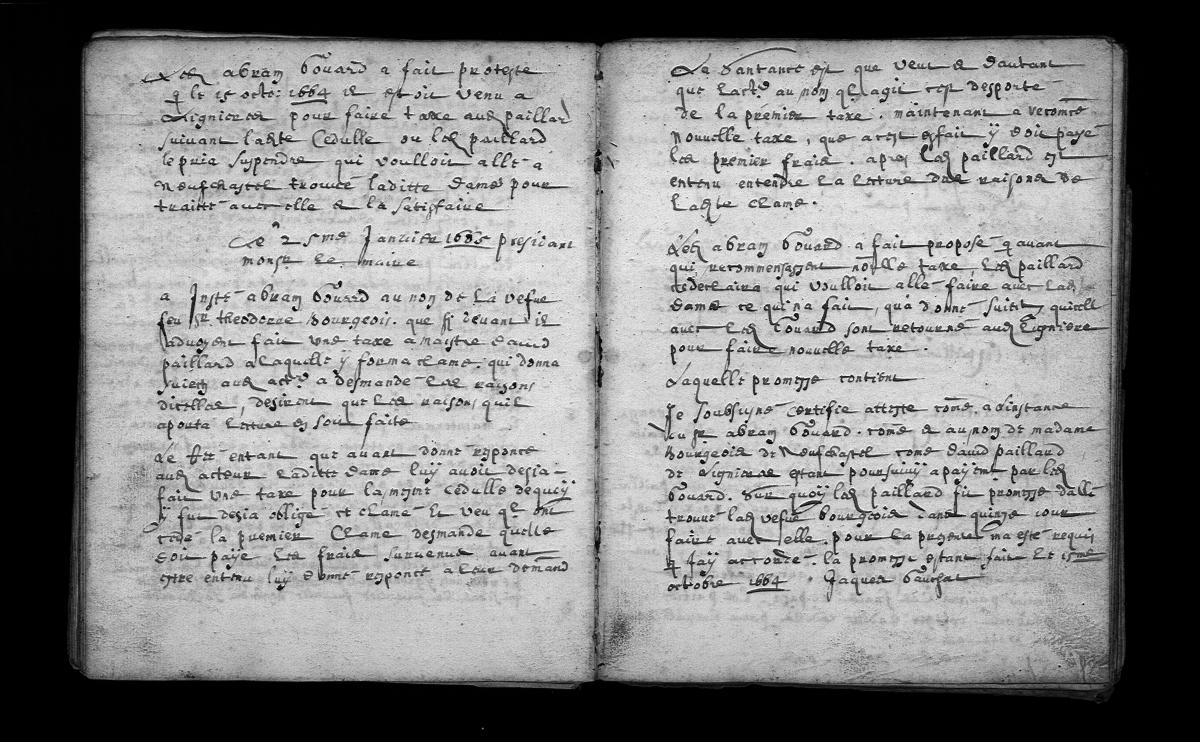 Led abram bouard a fait proteste
q le 15 octo: 1664 il estoit venu a
Lignieres pour faire taxe aud paillard
suivant ladte Cedulle ou led paillard
le pria suspendre qui voulloit allé a
Neufchastel trouvé laditte dame pour
traitté avec elle & la satisfaire
Le 25me Janvier 1665 presidant
monsr le maire
a Insté abram bouard au nom de la vefve
feu sr theodorre Bourgeois. que cy devant il
fait une taxe a maistre david
paillard a laquelle y forma clame. qui donna
aud act: a desmandé les raisons
dicelles, desirent que les raisons quil
aporta lecture en soit faite
Le entant que avant donné responce
aud acteur laditte dame luy avoit desia
fait une taxe pour la mesme cedulle dequoy
y fut desia obligé et clamé Et veu qe ont
cedé la premier Clame desmande quelle
doit payé les frais survenus avant
estre entenu luy donné responce a leur demand
La Santance est que veut & dautant
que lact: au nom ql agit cest desporté
de la premier taxe. maintenant a recomé
Nouvelle taxe, que acest esfait y doit payé
les premier frais. apres led paillard est
entenu entendre la lecture des raisons de
ladte clame.
Led abram bouard a fait proposé q avant
qui recommensassent nouvelle taxe, led paillard
declaira qui voulloit allé faire avec lad
dame ce qui na fait, qua donné suiect quicell
avec led bouard sont retourné aud Ligniere
pour faire nouvelle taxe.
Laquelle promesse contient
Je soubsigné certifie atteste comé. a linstance
du sr abram bouard. comé & au nom de madame
Bourgeois de Neufchastel comé david paillard
de Lignieres estant poursuivy a payemt par led
bouard. Sur quoy led paillard fit promesse dallé
trouvé lad vefve bourgeois dans quinze iour
faire avec elle. pour la presente ma esté requis
q Jay accordé. la promesse estant fait le 15me
octobre 1664 Jaques bauchat